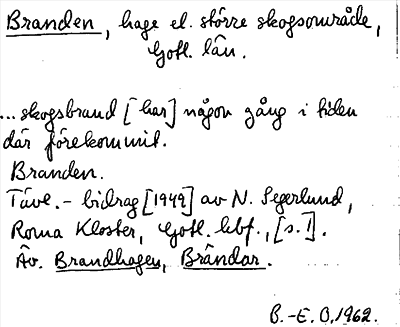 Branden, hage el. större skogsområde,
Gotl. län.
...skogsbrand [har] någon gång i tiden
där förekommit.
Branden.
Tävl.-bidrag [1949] av N. Segerlund,
Roma Kloster, Gotl. hbf., [s. 1].
Äv. Brandhagen, Brändar.
B.-E. O, 1962.